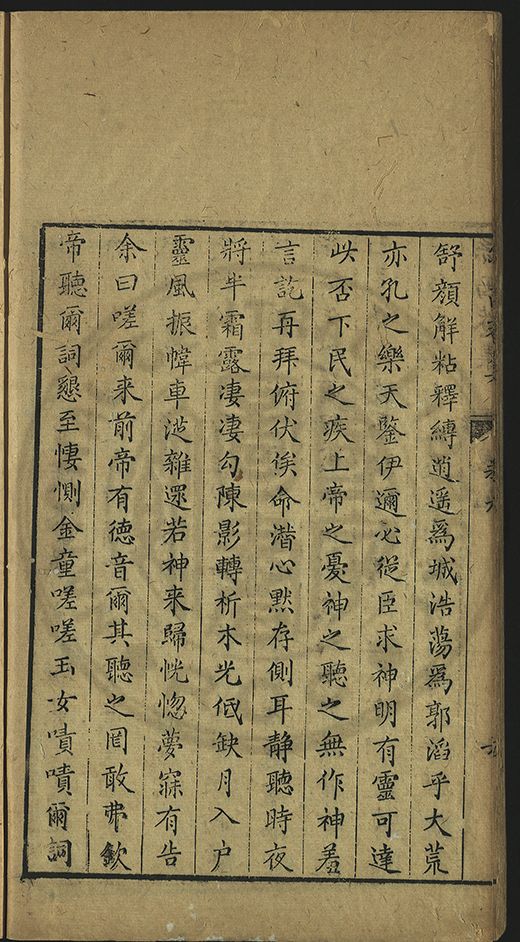 舒顔解粘釋縛逍遥爲城浩蕩爲郭滔乎大荒
亦孔之樂天鑒伊邇必從臣求神明有靈可達
此否下民之疾上帝之憂神之聽之無作神羞
言訖再拜俯伏俟命潜心默存側耳静聽時夜
將半霜露凄凄勾陳影轉析木光低缺月入户
靈風振幃車雜還若神来歸恍惚夢寐有告
余曰嗟爾来前帝有徳音爾其聽之罔敢弗欽
帝聽爾詞懇至悽惻金童嗟嗟玉女嘖嘖爾詞